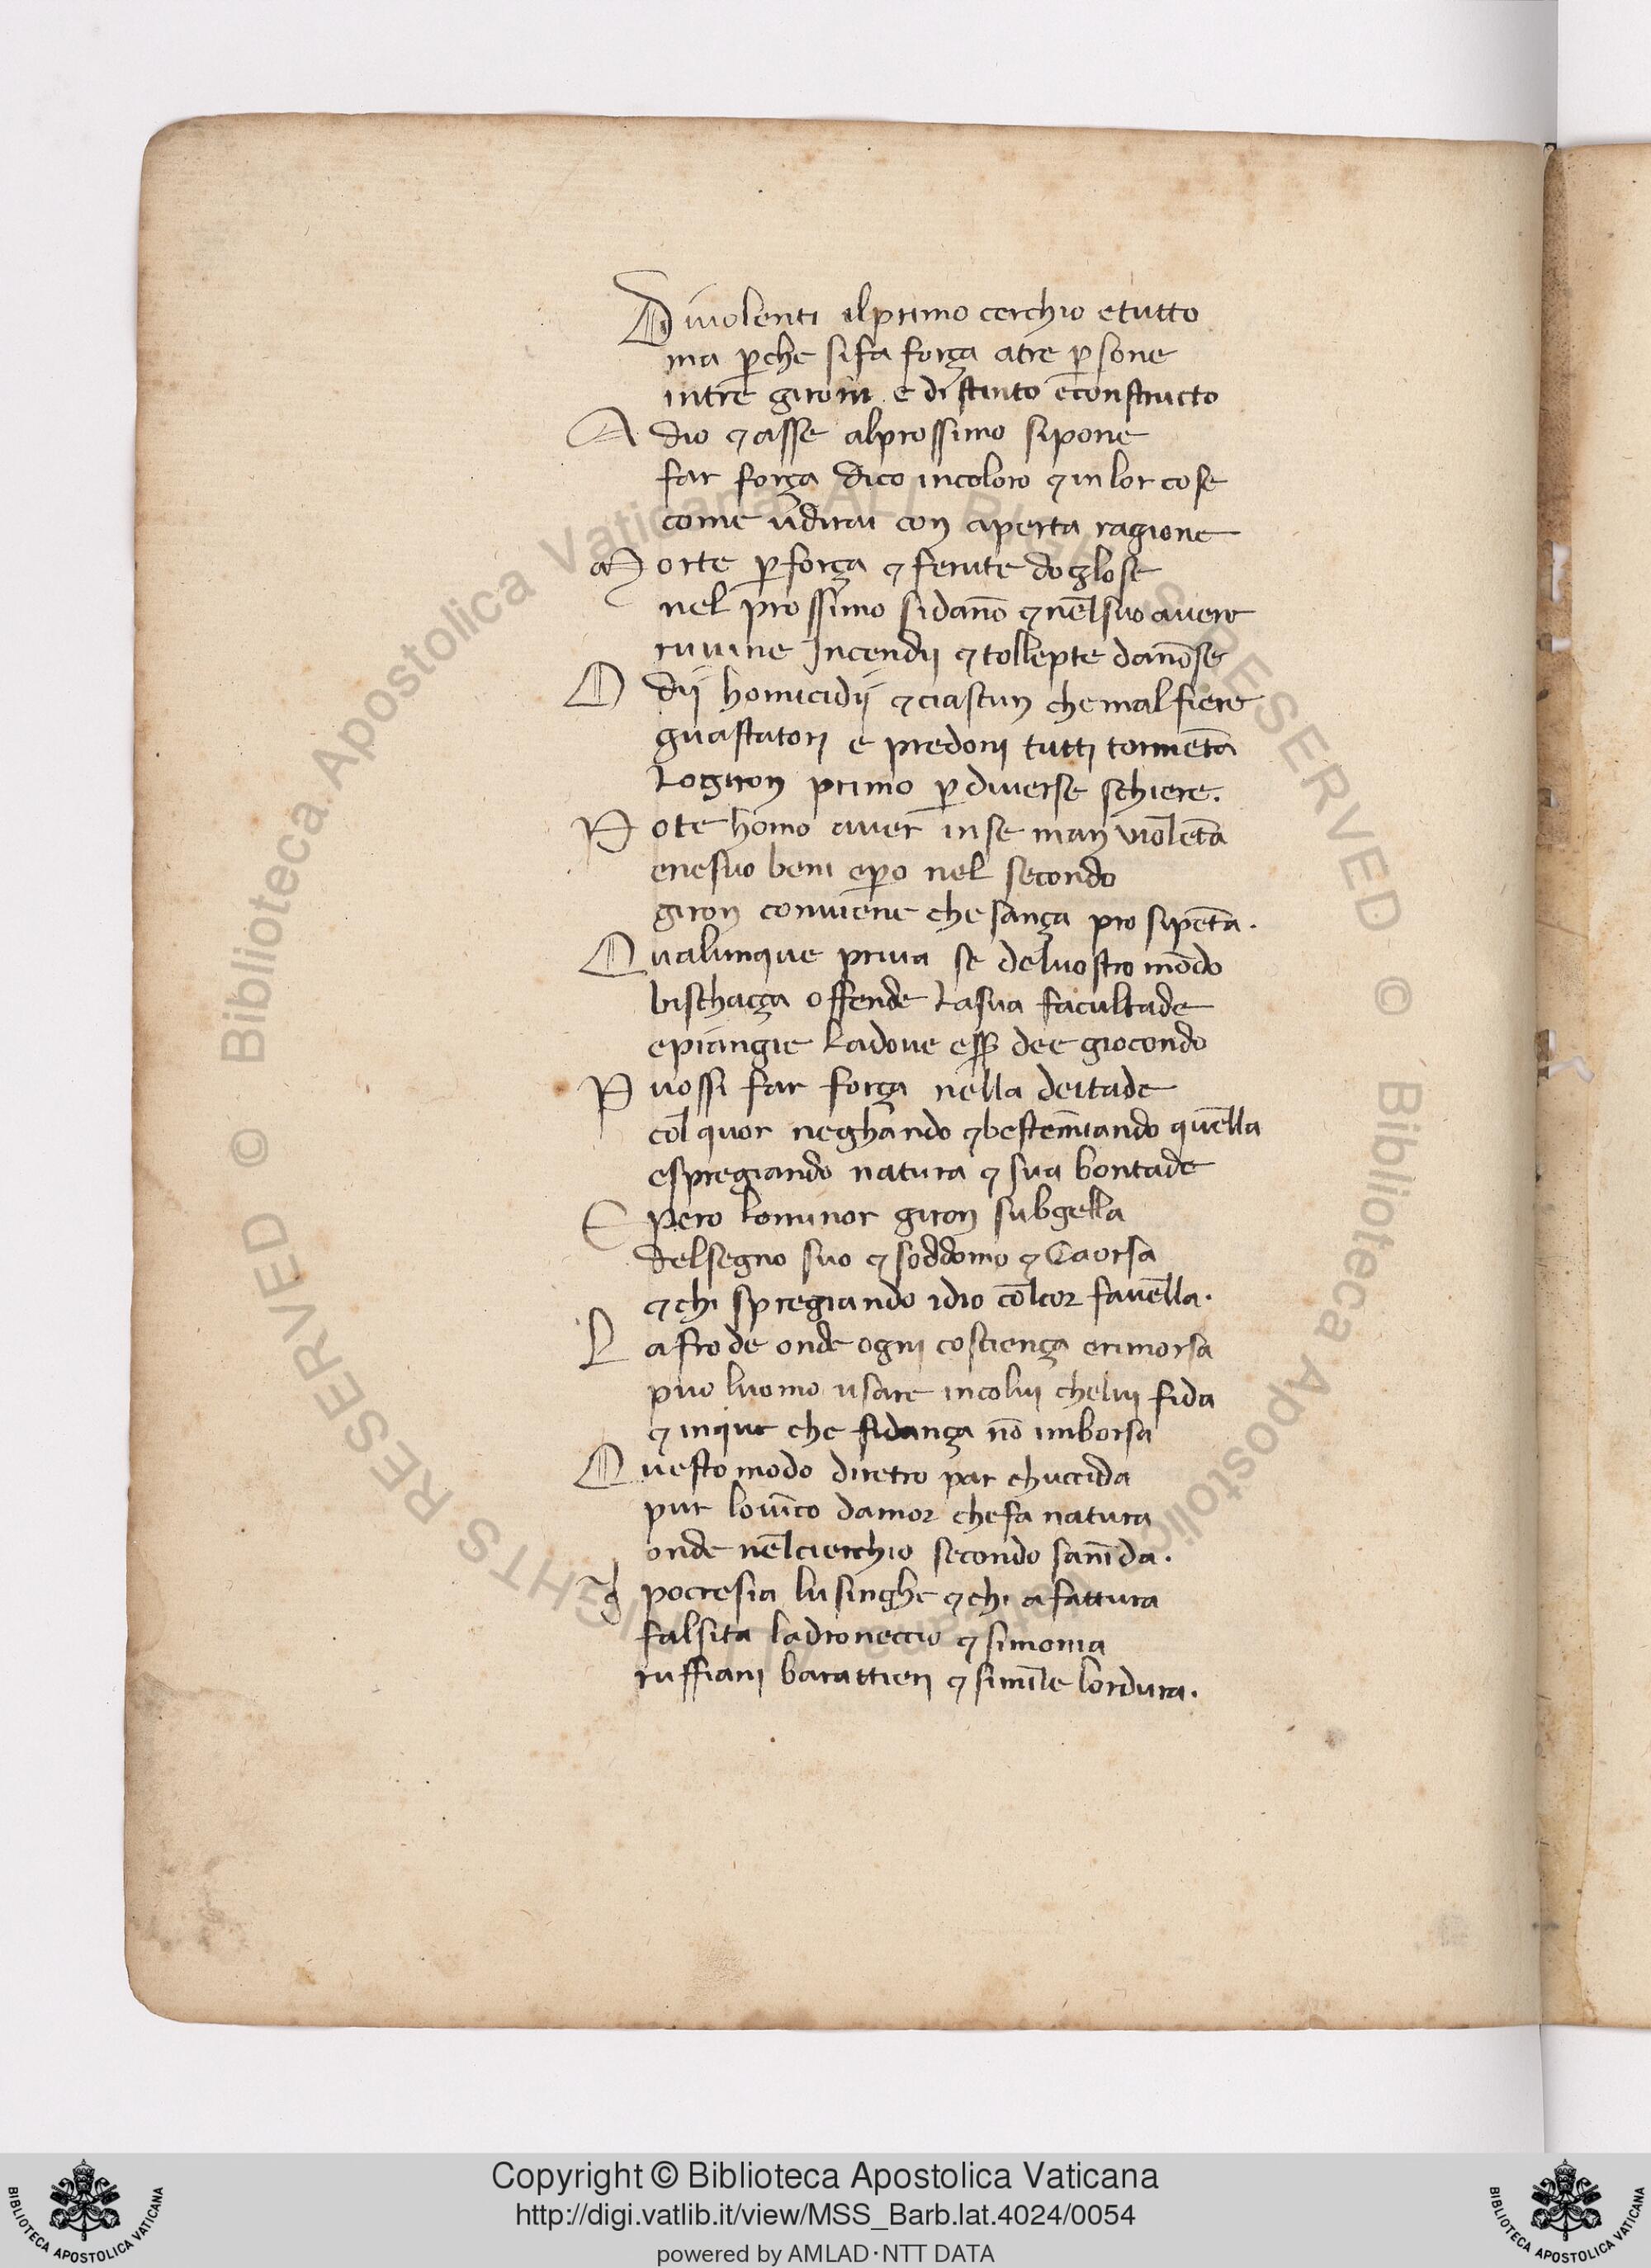 Diuiolenti ilprimo cerchio etutto
ma p̱che sifa força atre p̱sone
intre gironi e distinto econstructo
A dio ⁊ asse alprossimo sipone
far força dico incoloro ⁊ inlor cose
come udirai con aperta ragione
Morte p̱força ⁊ ferute dogliose
nel prossimo sidano ⁊ nelsuo auere
ruuine Incendij ⁊ tollepte danose
O dij homicidij ⁊ ciascun chemalfiere
guastatori e predoni tutti tormēta
Logiron primo p̱ diuerse schiere.
Pote homo auer inse man violēta
enesuo beni ep̱o nel secondo
giron conuiene che sança pro sipēta.
Qualunque priua se deluostro mōdo
bischaça offende Lasua facultade
epiangie Ladoue esser dee giocondo
Puossi far força nella deitade
col quor neghando ⁊ bestemiando quella
espregiando natura ⁊ sua bontade
E pero Lominor giron subgella
delsegno suo ⁊ soddomo ⁊ Caorsa
⁊ chi spregiando idio colcor fauella.
La frode onde ogni cosciença erimorsa
puo luomo usare incolui chelui fida
⁊ inque che fidança nō imborsa
Questo modo diretro par chuccida
pur louīco damor chefa natura
onde nelcierchio secondo sanīda.
Ipocresia lusinghe ⁊ chi afattura
falsita ladroneccio ⁊ simonia
ruffiani barattieri ⁊ simile lordura.
© Biblioteca Apostolica Vaticana ALL RIGHTS RESERVED
© Biblioteca Apostolica Vaticana ALL RIGHTS RESERVED
Copyright © Biblioteca Apostolica Vaticana
http://digi.vatlib.it/view/MSS_Barb.lat.4024/0054
powered by AMLAD·NTT DATA
BIBLIOTECA APOSTOLICA VATICANA
BIBLIOTECA APOSTOLICA VATICANA